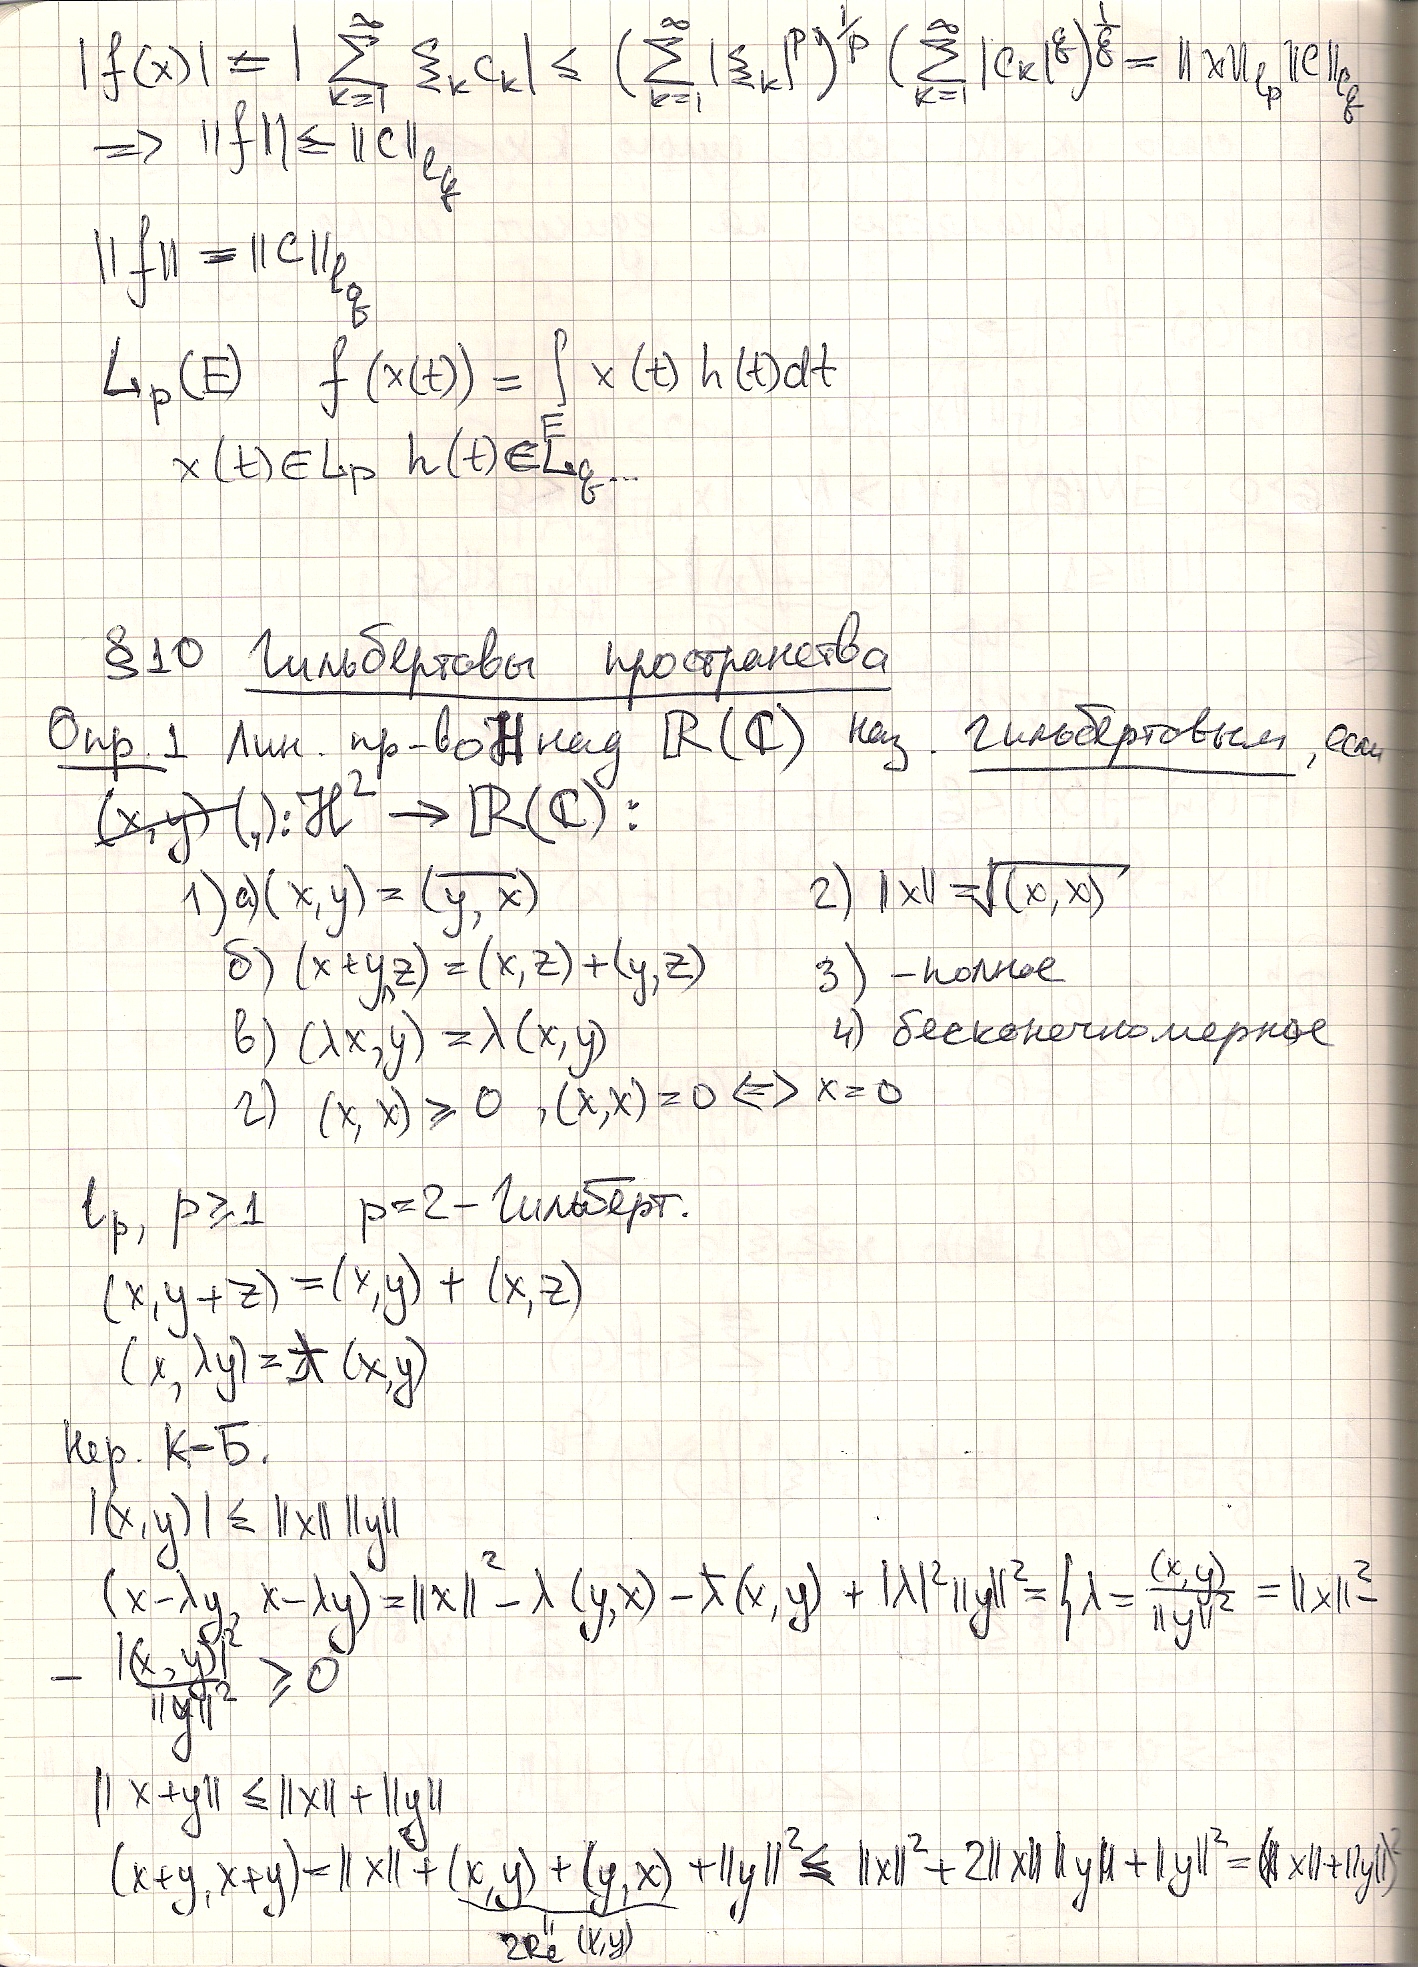 |f(x)| ≤ | ∑_{k=1}^∞ ξ_k c_k | ≤ (∑_{k=1}^∞ |ξ_k|^p)^{1/p} (∑_{k=1}^∞ |c_k|^q)^{1/q} = ||x||_{l_p} ||c||_{l_q}
=> ||f|| ≤ ||c||_{l_q}
||f|| = ||c||_{l_q}
L_p(E) f(x(t)) = ∫_E x(t) h(t)dt
x(t) ∈ L_p h(t) ∈ L_q...
§10 Гильбертовы пространства
Опр.1 Лин. пр-во H над ℝ(ℂ) наз. гильбертовым, если
(x,y) (,): H² → ℝ(ℂ):
1) а) (x,y) = \overline{(y,x)} 2) ||x|| = √(x,x)
б) (x+y,z) = (x,z)+(y,z) 3) -полное
в) (λx,y) = λ(x,y) 4) бесконечномерное
г) (x,x) ≥ 0, (x,x)=0 <=> x=0
l_p, p≥1 p=2 - Гильберт.
(x,y+z) = (x,y) + (x,z)
(x,λy) = \overline{λ} (x,y)
Нер. К-Б.
|(x,y)| ≤ ||x|| ||y||
(x-λy, x-λy) = ||x||² - λ(y,x) - \overline{λ}(x,y) + |λ|²||y||² = {λ = \frac{(x,y)}{||y||²} = ||x||² -
- \frac{|(x,y)|²}{||y||²} ≥ 0
||x+y|| ≤ ||x|| + ||y||
(x+y,x+y) = ||x|| + (x,y) + (y,x) + ||y||² ≤ ||x||² + 2||x|| ||y|| + ||y||² = (||x||+||y||)²
2Re (x,y)